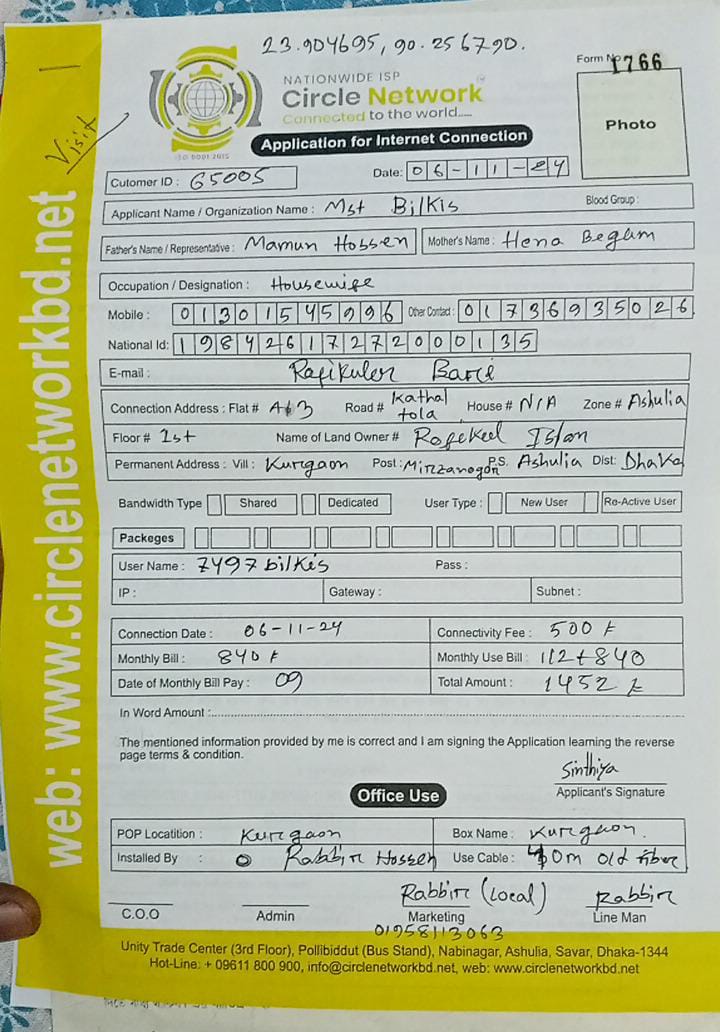 23.904695, 90.256790.
Form No 1766
NATIONWIDE ISP
Circle Network
Connected to the world.....
ISO 9001:2015
Visit
Application for Internet Connection
Photo
Cutomer ID : 65005
Date: 06-11-24
Applicant Name / Organization Name : Mst Bilkis Blood Group :
Father's Name / Representative : Mamun Hossen Mother's Name : Hena Begum
Occupation / Designation : Housewife
Mobile : 01301545996 Other Contact : 01736935026
National Id: 19842617272000135
E-mail : Rafikuler Bari
Connection Address : Flat # A63 Road # Kathal tola House # N/A Zone # Ashulia
Floor # 1st Name of Land Owner # Rafekul Islam
Permanent Address : Vill : Kurgaon Post : Mirzanagor P.S. Ashulia Dist: Dhaka
Bandwidth Type Shared Dedicated User Type : New User Re-Active User
Packeges
User Name : 7497bilkis Pass :
IP : Gateway : Subnet :
Connection Date : 06-11-24 Connectivity Fee : 500 t
Monthly Bill : 840 t Monthly Use Bill : 112+840
Date of Monthly Bill Pay : 09 Total Amount : 1452 t
In Word Amount :
The mentioned information provided by me is correct and I am signing the Application learning the reverse
page terms & condition.
Sinthiya
Applicant's Signature
Office Use
POP Locatition : Kurgaon Box Name : Kurgaon.
Installed By : Rabbir Hossen Use Cable : 40m old fiber
Rabbir (Local) Rabbir
C.O.O Admin Marketing Line Man
01958113063
Unity Trade Center (3rd Floor), Pollibiddut (Bus Stand), Nabinagar, Ashulia, Savar, Dhaka-1344
Hot-Line: + 09611 800 900, info@circlenetworkbd.net, web: www.circlenetworkbd.net
web: www.circlenetworkbd.net